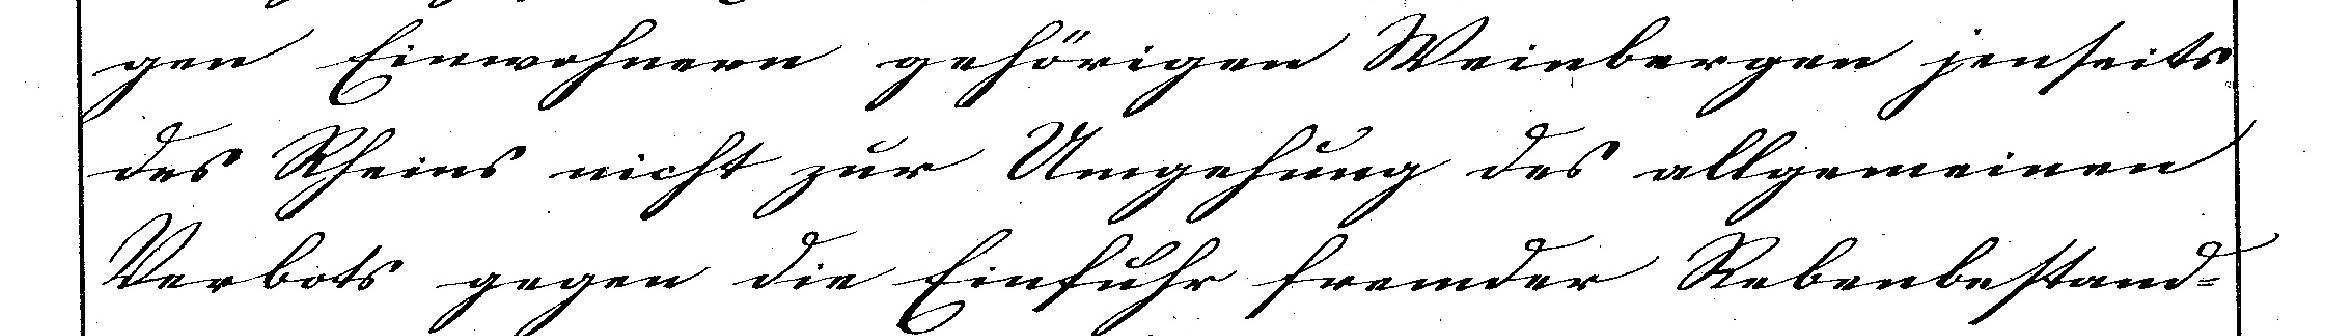 gen Einwohnern gehörigen Weinbergen jenseits
des Rheins nicht zur Umgehung des allgemeinen
Verbots gegen die Einfuhr fremder Rebenbestand-